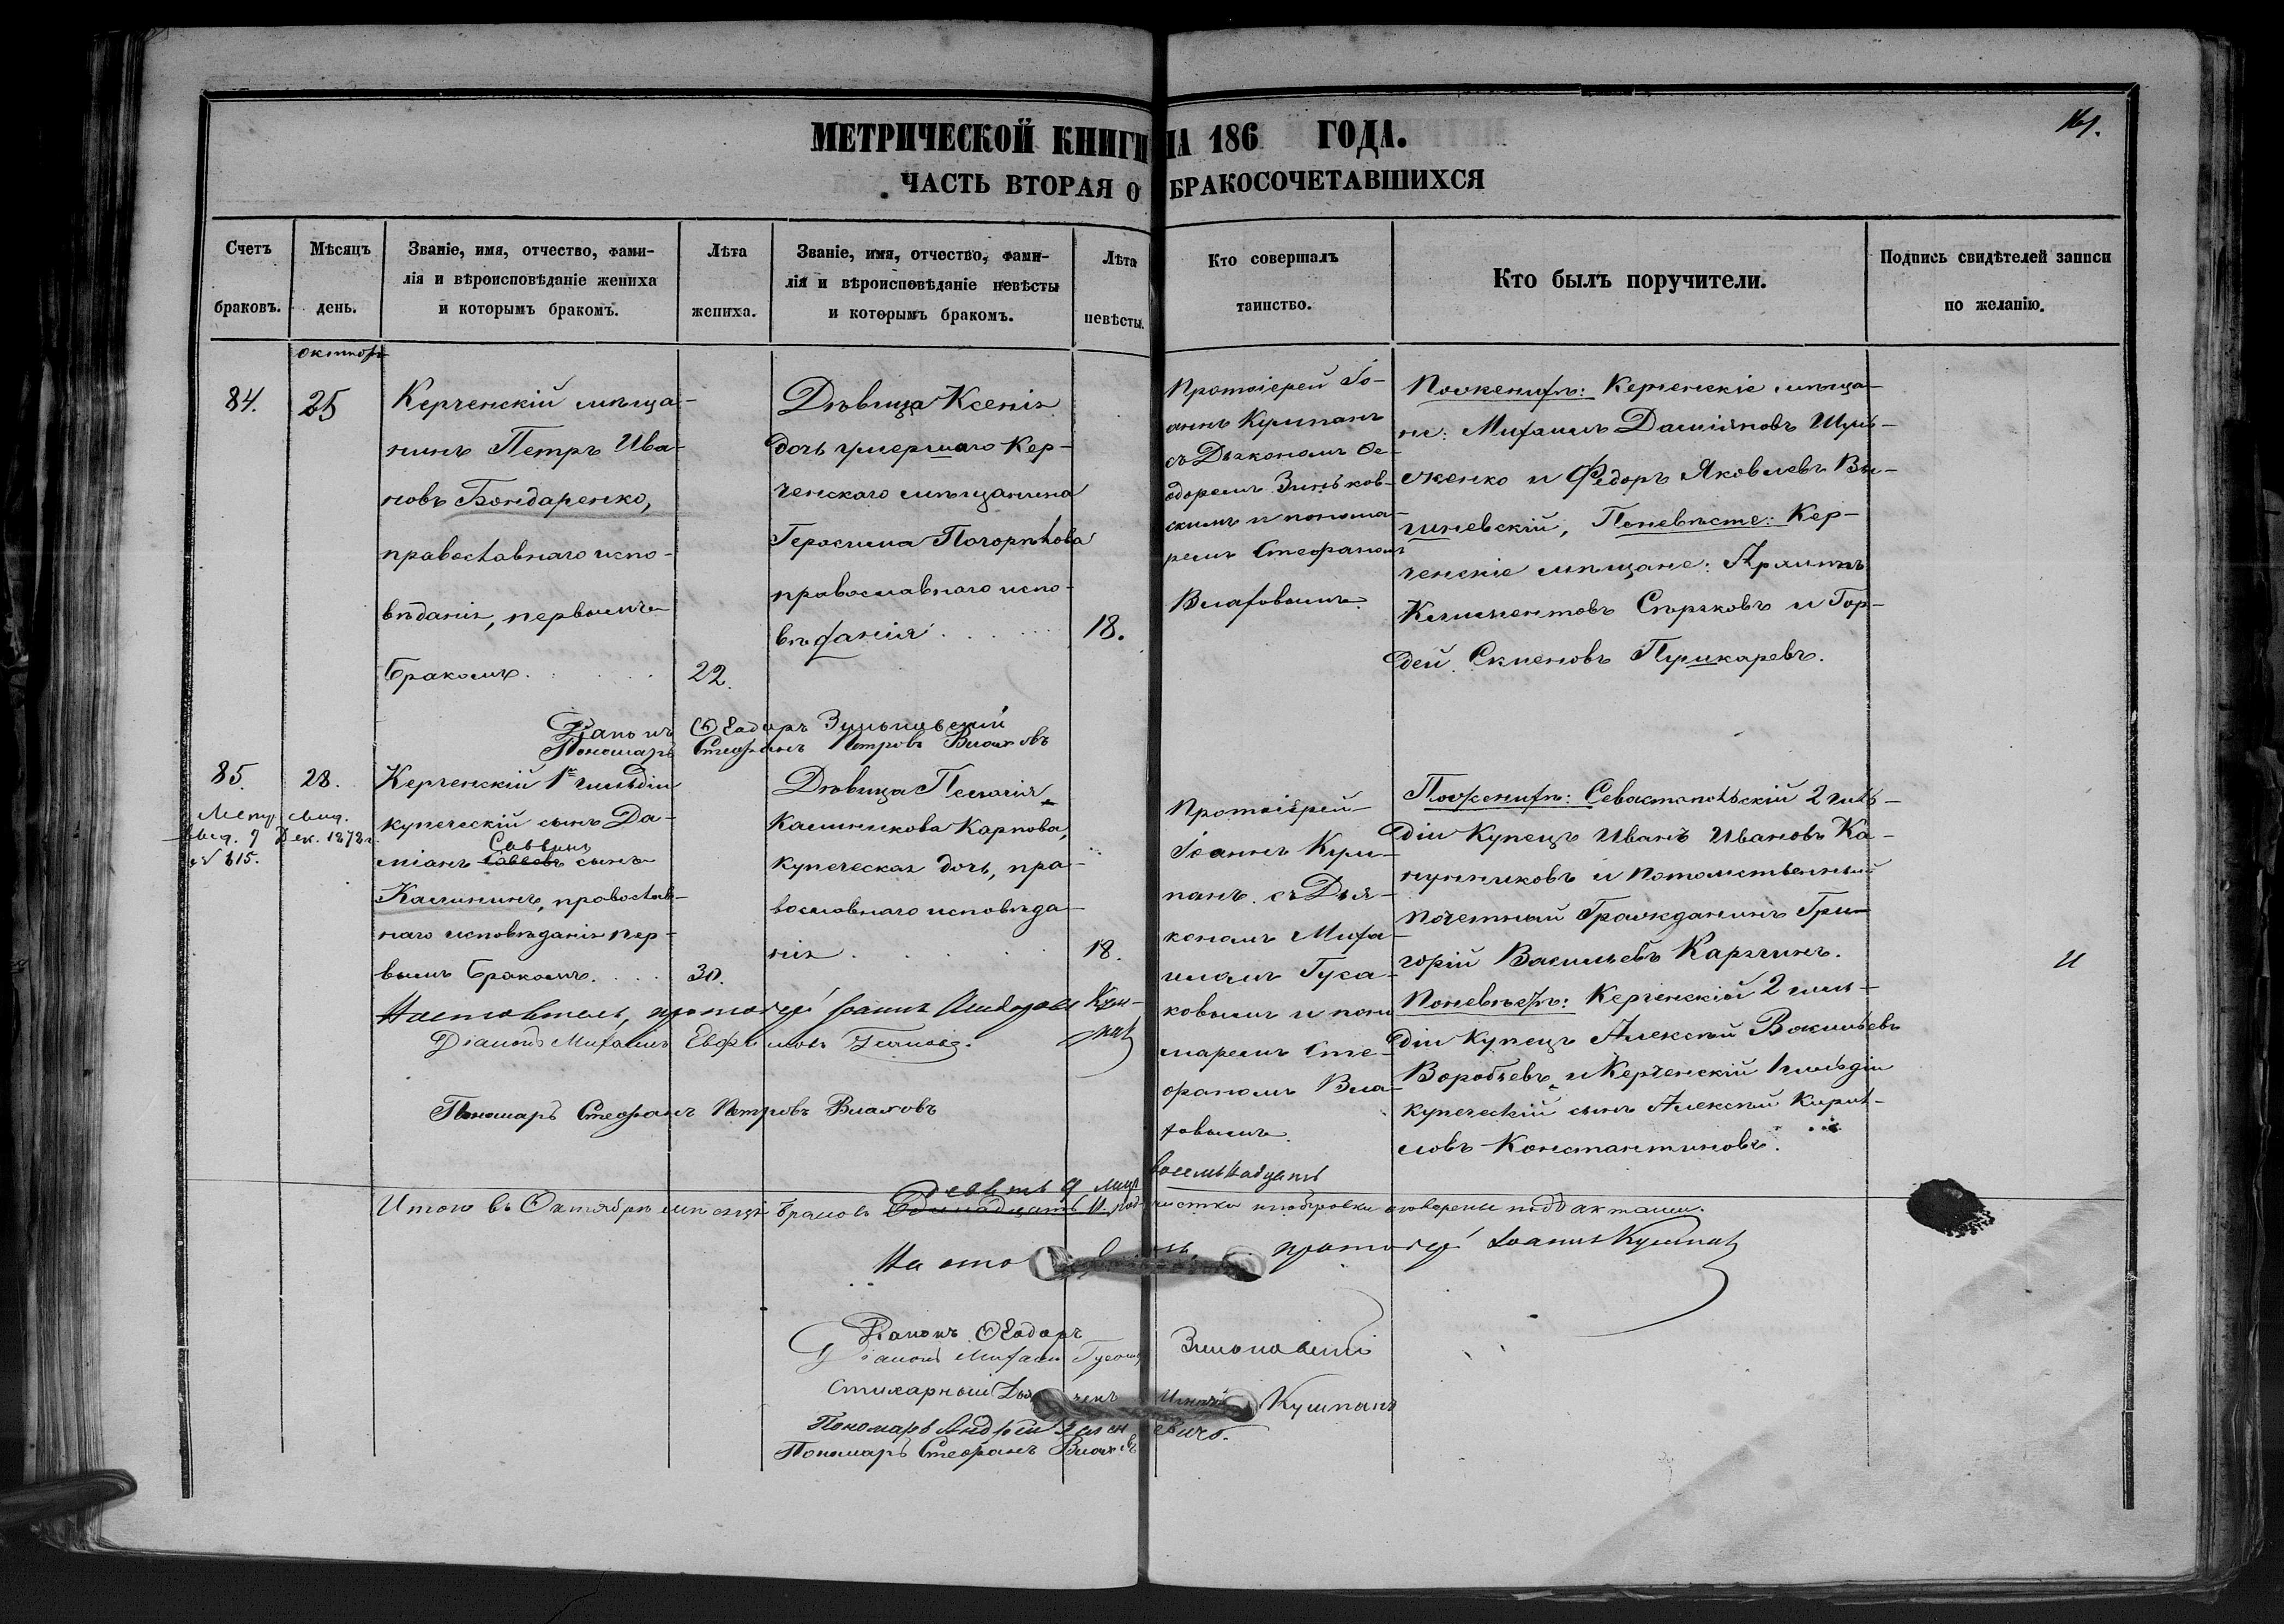 МЕТРИЧЕСКОЙ КНИГИ НА 186 ГОДА.
ЧАСТЬ ВТОРАЯ О БРАКОСОЧЕТАВШИХСЯ
Счетъ
браковъ.
Мѣсяцъ
день.
Званіе, имя, отчество, фами-
лія и вѣроисповѣданіе жениха
и которымъ бракомъ.
Лѣта
жениха.
Званіе, имя, отчество, фами-
лія и вѣроисповѣданіе невѣсты
и которымъ бракомъ.
Лѣта
невѣсты.
Кто совершалъ
таинство.
Кто былъ поручители.
Подпись свидѣтелей записи
по желанію.
84.
25
Керченскій мѣща-
нинъ Петръ Ива-
новъ Бондаренко,
православнаго испо-
вѣданія, первымъ
бракомъ
22.
Дѣвица Ксенія
дочь умершаго Кер-
ченскаго мѣщанина
Герасима Погорѣлова
православнаго испо-
вѣданія
18.
Протоіерей Іо-
аннъ Кумпанъ
съ Дьякономъ Ѳе-
одоромъ Зиньков-
скимъ и понома-
ремъ Стефаномъ
Влаховымъ.
Поженихѣ: Керченскіе мѣща-
не: Михаилъ Даміановъ Шуль-
женко и Федоръ Яковлевъ Ви-
шневскій, Поневѣсте: Кер-
ченскіе мѣщане:
Климентовъ и Гор-
дей Пушкаревъ.
Діаконъ Ѳеодоръ Зиньковскій
Пономарь Стефанъ Петровъ Влаховъ
85.
28.
Метр. вид.
выд. 9 Дек. 1878 г.
№ 615.
Керченскій 1й гильдіи
купеческій сынъ Да-
Саввинъ
міанъ Саввовъ сынъ
Калининъ, православ-
наго исповѣданія пер-
вымъ бракомъ.
30.
Дѣвица Пелагія
Калинникова Карпова,
купеческая дочь, пра-
вославнаго исповѣда-
нія
18.
Протоіерей
Іоаннъ Кум-
панъ съ Дья-
кономъ Миха-
иломъ Гуса-
ковымъ и поно-
маремъ Сте-
фаномъ Вла-
ховымъ.
Поженихѣ: Севастопольскій 2 гиль-
діи Купецъ Иванъ Ивановъ Ка-
нунниковъ и Потомственный
почетный Гражданинъ Гри-
горій Васильевъ Карзинъ.
Поневѣсте: Керченскій 2 гиль-
діи Купецъ Алексѣй Васильевъ
Воробьевъ и Керченскій 1 гильдіи
купеческій сынъ Алексѣй Кирил-
ловъ Константиновъ.
Настоятель, протоіерей Іоаннъ Кум-
панъ
Діаконъ Михаилъ
Пономарь Стефанъ Петровъ Влаховъ
девять 9
восемьнадцать
Итого въ Октябрѣ мѣсяцѣ браковъ Одинадцать 11.
Настоятель, протоіерей Іоаннъ Кумпанъ
Діаконъ Ѳеодоръ Зиньковскій
Діаконъ Михаилъ Гусаковъ
Стихарный Кумпанъ
Пономарь Андрей
Пономарь Стефанъ Влаховъ